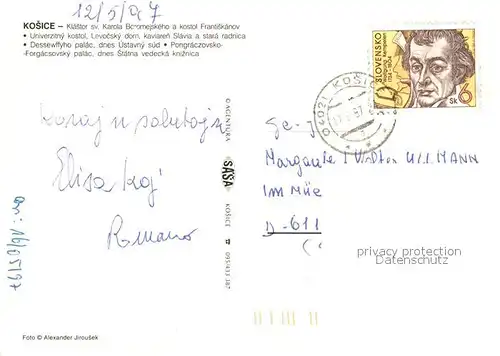 12/5/97
KOŠICE – Kláštor sv. Karola Boromejského a kostol Františkánov
• Univerzitný kostol, Levočský dom, kaviareň Slávia a stará radnica
• Dessewffyho palác, dnes Ústavný súd • Pongráczovsko-
Forgácsovský palác, dnes Štátna vedecká knižnica
Koraj n salutojn
Elisa kaj
Romano
© AGENTÚRA SAŠA KOŠICE ☎ 095/433 387
SLOVENSKO
Sk 6
04021 KOŠICE
Margarete
D-611
privacy protection
Datenschutz
Foto © Alexander Jiroušek